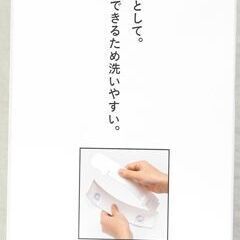 として。
できるため洗いやすい。